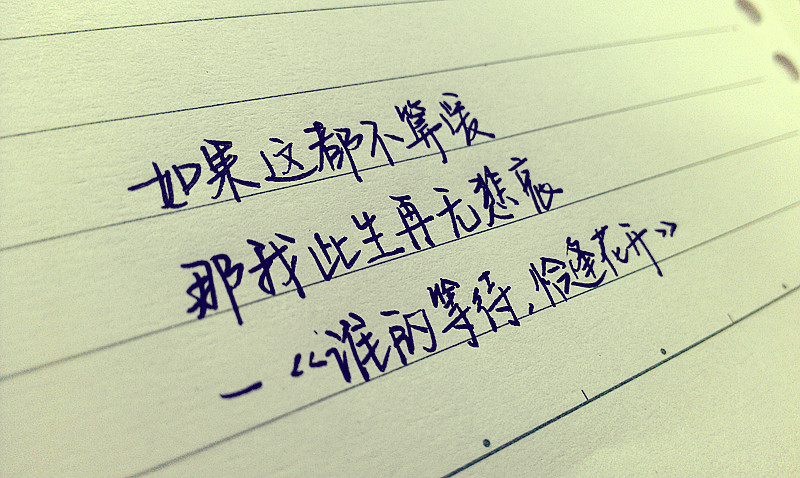 如果这都不算爱
那我此生再无悲哀
—《谁的等待,恰逢花开》